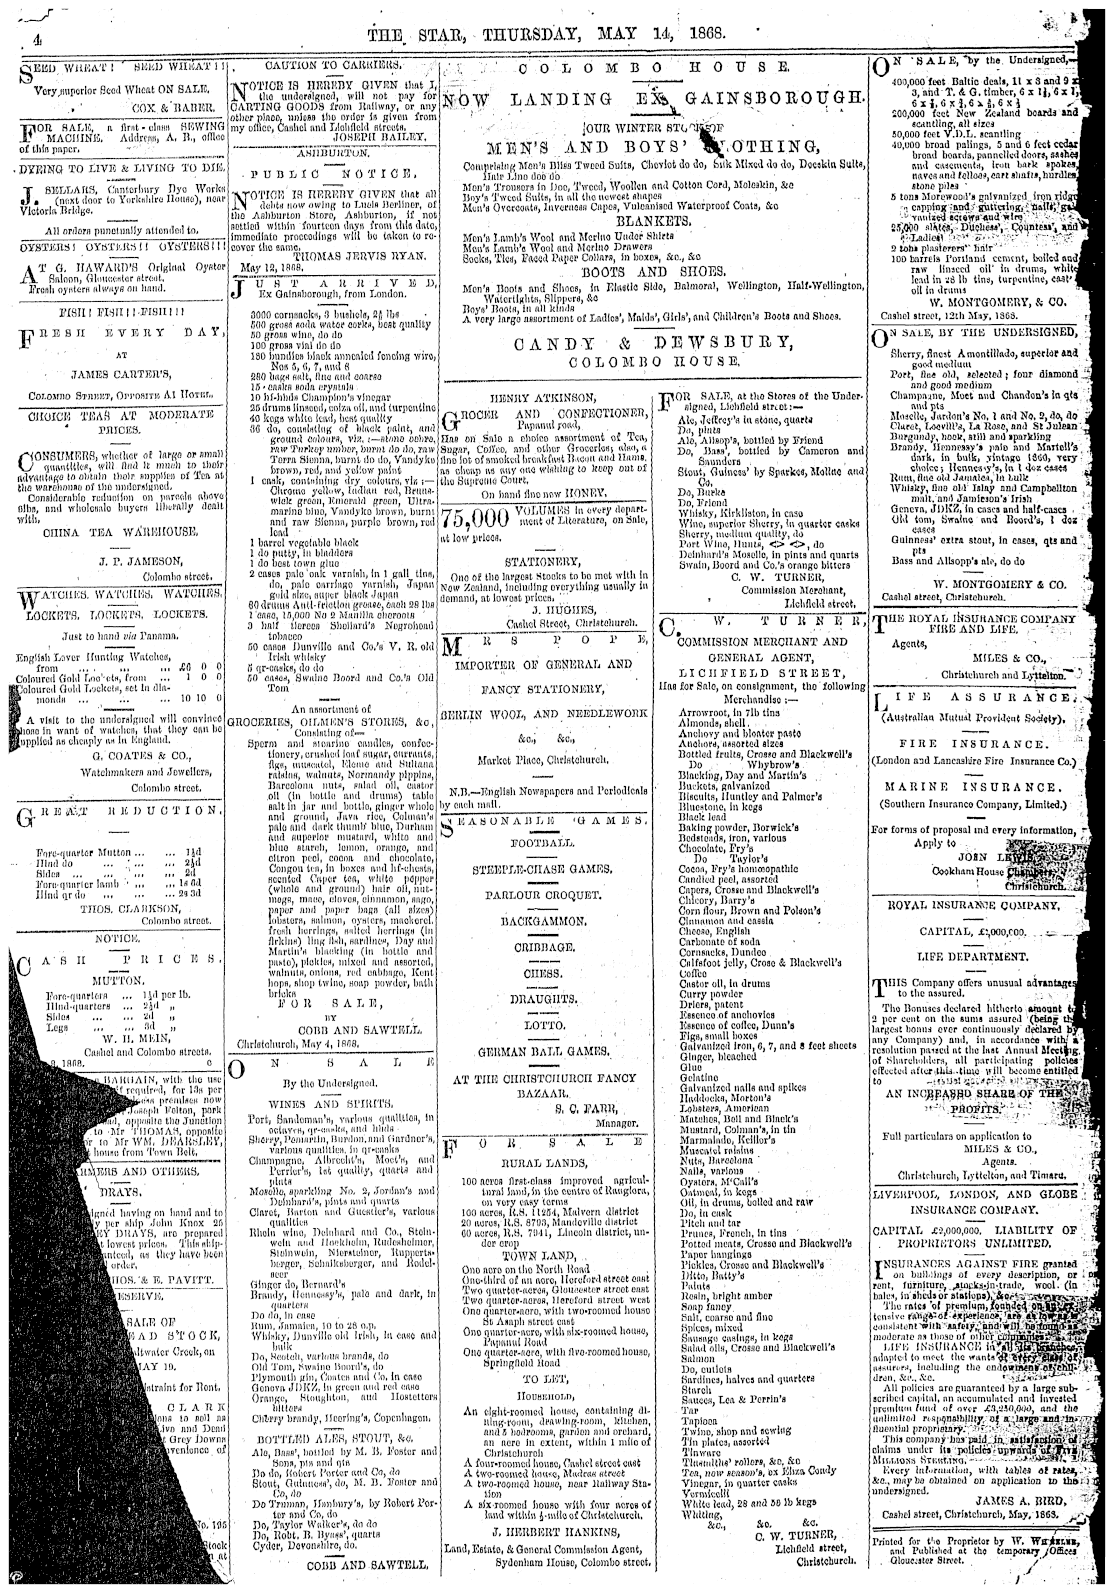 4
THE STAR, THURSDAY, MAY 14, 1868.
SEED WHEAT! SEED WHEAT!!
Very superior Seed Wheat ON SALE,
COX & BABER.
FOR SALE, a first-class SEWING
MACHINE. Address, A. B., office
of this paper.
DYEING TO LIVE & LIVING TO DIE.
J. SELLARS, Canterbury Dye Works
(next door to Yorkshire House), near
Victoria Bridge.
All orders punctually attended to.
OYSTERS! OYSTERS!! OYSTERS!!!
AT G. HAWARD'S Original Oyster
Saloon, Gloucester street.
Fresh oysters always on hand.
FISH! FISH!! FISH!!!
FRESH EVERY DAY,
AT
JAMES CARTER'S,
COLOMBO STREET, OPPOSITE A1 HOTEL.
CHOICE TEAS AT MODERATE
PRICES.
CONSUMERS, whether of large or small
quantities, will find it much to their
advantage to obtain their supplies of Tea at
the warehouse of the undersigned.
Considerable reduction on parcels above
6lbs, and wholesale buyers liberally dealt
with.
CHINA TEA WAREHOUSE.
J. P. JAMESON,
Colombo street.
WATCHES. WATCHES. WATCHES.
LOCKETS. LOCKETS. LOCKETS.
Just to hand via Panama.
English Lever Hunting Watches,
from ... ... ... £6 0 0
Coloured Gold Lockets, from ... 1 0 0
Coloured Gold Lockets, set in dia-
monds ... ... ... 10 10 0
A visit to the undersigned will convince
those in want of watches, that they can be
supplied as cheaply as in England.
G. COATES & CO.,
Watchmakers and Jewellers,
Colombo street.
GREAT REDUCTION.
Fore-quarter Mutton ... ... 1½d
Hind do ... ... 2½d
Sides ... ... ... 2d
Fore-quarter lamb ... ... 1s 6d
Hind qr do ... ... 2s 3d
THOS. CLARKSON,
Colombo street.
NOTICE.
CASH PRICES.
MUTTON.
Fore-quarters ... 1½d per lb.
Hind-quarters ... 2½d „
Sides ... ... 2d „
Legs ... ... 3d „
W. H. MEIN,
Cashel and Colombo streets.
8, 1868.
BARGAIN, with the use
if required, for 13s per
premises now
Joseph Felton, pork
opposite the Junction
to Mr THOMAS, opposite
or to Mr WM. DEARSLEY,
house from Town Belt.
FARMERS AND OTHERS.
DRAYS.
having on hand and to
per ship John Knox 25
DRAYS, are prepared
lowest prices. This ship-
as they have been
order.
THOS. & E. PAVITT.
RESERVE.
SALE OF
STOCK,
Saltwater Creek, on
MAY 19.
for Rent.
CLARK
to sell as
Live and Dead
Grey Downs
convenience of
No. 195
Stock
at
CAUTION TO CARRIERS.
NOTICE IS HEREBY GIVEN that I,
the undersigned, will not pay for
CARTING GOODS from Railway, or any
other place, unless the order is given from
my office, Cashel and Lichfield streets.
JOSEPH BAILEY.
ASHBURTON.
PUBLIC NOTICE.
NOTICE IS HEREBY GIVEN that all
debts now owing to Lucis Berliner, of
the Ashburton Store, Ashburton, if not
settled within fourteen days from this date,
immediate proceedings will be taken to re-
cover the same.
THOMAS JERVIS RYAN.
May 12, 1868.
JUST ARRIVED,
Ex Gainsborough, from London.
3000 cornsacks, 3 bushels, 2½ lbs
500 gross soda water corks, best quality
50 gross wine, do do
100 gross vial do do
180 bundles black annealed fencing wire,
Nos 5, 6, 7, and 8
280 bags salt, fine and coarse
15 casks soda crystals
10 hf-hhds Champion's vinegar
25 drums linseed, colza oil, and turpentine
40 kegs white lead, best quality
36 do, consisting of black paint, and
ground colours, viz.:—stone ochre,
raw Turkey umber, burnt do do, raw
Terra Sienna, burnt do do, Vandyke
brown, red, and yellow paint
1 cask, containing dry colours, viz:—
Chrome yellow, Indian red, Bruns-
wick green, Emerald green, Ultra-
marine blue, Vandyke brown, burnt
and raw Sienna, purple brown, red
lead
1 barrel vegetable black
1 do putty, in bladders
1 do best town glue
2 cases pale oak varnish, in 1 gall tins,
do, pale carriage varnish, Japan
gold size, super black Japan
60 drums Anti-friction grease, each 28 lbs
1 case, 15,000 No 2 Manilla cheroots
3 half tierces Shellard's Negrohead
tobacco
50 cases Dunville and Co.'s V. R. old
Irish whisky
5 qr-casks, do do
50 cases, Swaine Boord and Co.'s Old
Tom
An assortment of
GROCERIES, OILMEN'S STORES, &c,
Consisting of—
Sperm and stearine candles, confec-
tionery, crushed loaf sugar, currants,
figs, muscatel, Eleme and Sultana
raisins, walnuts, Normandy pippins,
Barcelona nuts, salad oil, castor
oil (in bottle and drums) table
salt in jar and bottle, ginger whole
and ground, Java rice, Colman's
pale and dark thumb blue, Durham
and superior mustard, white and
blue starch, lemon, orange, and
citron peel, cocoa and chocolate,
Congou tea, in boxes and hf-chests,
scented Caper tea, white pepper
(whole and ground) hair oil, nut-
megs, mace, cloves, cinnamon, sago,
paper and paper bags (all sizes)
lobsters, salmon, oysters, mackerel,
fresh herrings, salted herrings (in
firkins) ling fish, sardines, Day and
Martin's blacking (in bottle and
paste), pickles, mixed and assorted,
walnuts, onions, red cabbage, Kent
hops, shop twine, soap powder, bath
bricks
FOR SALE,
BY
COBB AND SAWTELL.
Christchurch, May 4, 1868.
ON SALE
By the Undersigned.
WINES AND SPIRITS.
Port, Sandeman's, various qualities, in
octaves, qr-casks, and hhds
Sherry, Pemartin, Burdon, and Gardner's,
various qualities, in qr-casks
Champagne, Albrecht's, Moet's, and
Perrier's, 1st quality, quarts and
pints
Moselle, sparkling No. 2, Jordan's and
Deinhard's, pints and quarts
Claret, Barton and Guestier's, various
qualities
Rhein wine, Deinhard and Co., Stein-
wein and Hockheim, Rudesheimer,
Steinwein, Niersteiner, Rupperts-
berger, Schalksberger, and Rodel-
seer
Ginger do, Bernard's
Brandy, Hennessy's, pale and dark, in
quarters
Do do, in case
Rum, Jamaica, 10 to 28 o.p.
Whisky, Dunville old Irish, in case and
bulk
Do, Scotch, various brands, do
Old Tom, Swaine Boord's, do
Plymouth gin, Coates and Co. in case
Geneva JDKZ, in green and red case
Orange, Stoughton, and Hostetters
bitters
Cherry brandy, Heering's, Copenhagen.
BOTTLED ALES, STOUT, &c.
Ale, Bass', bottled by M. B. Foster and
Sons, pts and qts
Do do, Robert Porter and Co, do
Stout, Guinness', do, M. B. Foster and
Co, do
Do Truman, Hanbury's, by Robert Por-
ter and Co, do
Do, Taylor Walker's, do do
Do, Robt. B. Byass', quarts
Cyder, Devonshire, do.
COBB AND SAWTELL.
COLOMBO HOUSE.
NOW LANDING EX GAINSBOROUGH.
OUR WINTER STOCK OF
MEN'S AND BOYS' CLOTHING,
Comprising Men's Bliss Tweed Suits, Cheviot do do, Silk Mixed do do, Doeskin Suits,
Hair Line doe do
Men's Trousers in Doe, Tweed, Woollen and Cotton Cord, Moleskin, &c
Boy's Tweed Suits, in all the newest shapes
Men's Overcoats, Inverness Capes, Vulcanised Waterproof Coats, &c
BLANKETS.
Men's Lamb's Wool and Merino Under Shirts
Men's Lamb's Wool and Merino Drawers
Socks, Ties, Faced Paper Collars, in boxes, &c., &c
BOOTS AND SHOES.
Men's Boots and Shoes, in Elastic Side, Balmoral, Wellington, Half-Wellington,
Watertights, Slippers, &c
Boys' Boots, in all kinds
A very large assortment of Ladies', Maids', Girls', and Children's Boots and Shoes.
CANDY & DEWSBURY,
COLOMBO HOUSE.
HENRY ATKINSON,
GROCER AND CONFECTIONER,
Papanui road,
Has on Sale a choice assortment of Tea,
Sugar, Coffee, and other Groceries; also, a
fine lot of smoked breakfast Bacon and Hams,
as cheap as any one wishing to keep out of
the Supreme Court.
On hand fine new HONEY.
75,000 VOLUMES in every depart-
ment of Literature, on Sale,
at low prices.
STATIONERY,
One of the largest Stocks to be met with in
New Zealand, including everything usually in
demand, at lowest prices.
J. HUGHES,
Cashel Street, Christchurch.
MRS POPE,
IMPORTER OF GENERAL AND
FANCY STATIONERY,
BERLIN WOOL, AND NEEDLEWORK
&c., &c.,
Market Place, Christchurch.
N.B.—English Newspapers and Periodicals
by each mail.
SEASONABLE GAMES.
FOOTBALL.
STEEPLE-CHASE GAMES.
PARLOUR CROQUET.
BACKGAMMON.
CRIBBAGE.
CHESS.
DRAUGHTS.
LOTTO.
GERMAN BALL GAMES.
AT THE CHRISTCHURCH FANCY
BAZAAR.
S. C. FARR,
Manager.
FOR SALE
RURAL LANDS,
100 acres first-class improved agricul-
tural land, in the centre of Rangiora,
on very easy terms
100 acres, R.S. 11254, Malvern district
20 acres, R.S. 8793, Mandeville district
60 acres, R.S. 7941, Lincoln district, un-
der crop
TOWN LAND,
One acre on the North Road
One-third of an acre, Hereford street east
Two quarter-acres, Gloucester street east
Two quarter-acres, Hereford street west
One quarter-acre, with two-roomed house
St Asaph street east
One quarter-acre, with six-roomed house,
Papanui Road
One quarter-acre, with five-roomed house,
Springfield Road
TO LET,
HOUSEHOLD,
An eight-roomed house, containing di-
ning-room, drawing-room, kitchen,
and 5 bedrooms, garden and orchard,
an acre in extent, within 1 mile of
Christchurch
A four-roomed house, Cashel street east
A two-roomed house, Madras street
A two-roomed house, near Railway Sta-
tion
A six-roomed house with four acres of
land within ½-mile of Christchurch.
J. HERBERT HANKINS,
Land, Estate, & General Commission Agent,
Sydenham House, Colombo street.
FOR SALE, at the Stores of the Under-
signed, Lichfield street:—
Ale, Jeffrey's in stone, quarts
Do, pints
Do, Allsop's, bottled by Friend
Do, Bass', bottled by Cameron and
Saunders
Stout, Guiness' by Sparkes, Moline and
Co.
Do, Burke
Do, Friend
Whisky, Kirkliston, in case
Wine, superior Sherry, in quarter casks
Sherry, medium quality, do
Port Wine, Hunts, <> <>, do
Deinhard's Moselle, in pints and quarts
Swain, Boord and Co.'s orange bitters
C. W. TURNER,
Commission Merchant,
Lichfield street.
C. W. TURNER,
COMMISSION MERCHANT AND
GENERAL AGENT,
LICHFIELD STREET,
Has for Sale, on consignment, the following
Merchandise:—
Arrowroot, in 7lb tins
Almonds, shell
Anchovy and bloater paste
Anchors, assorted sizes
Bottled fruits, Crosse and Blackwell's
Do Whybrow's
Blacking, Day and Martin's
Buckets, galvanized
Biscuits, Huntley and Palmer's
Bluestone, in kegs
Black lead
Baking powder, Borwick's
Bedsteads, iron, various
Chocolate, Fry's
Do Taylor's
Cocoa, Fry's homœopathic
Candied peel, assorted
Capers, Crosse and Blackwell's
Chicory, Barry's
Corn flour, Brown and Polson's
Cinnamon and cassia
Cheese, English
Carbonate of soda
Cornsacks, Dundee
Calfsfoot jelly, Crose & Blackwell's
Coffee
Castor oil, in drums
Curry powder
Driers, patent
Essence of anchovies
Essence of coffee, Dunn's
Figs, small boxes
Galvanized iron, 6, 7, and 8 feet sheets
Ginger, bleached
Glue
Gelatine
Galvanized nails and spikes
Haddocks, Morton's
Lobsters, American
Matches, Bell and Black's
Mustard, Colman's, in tin
Marmalade, Keillor's
Muscatel raisins
Nuts, Barcelona
Nails, various
Oysters, McCall's
Oatmeal, in kegs
Oil, in drums, boiled and raw
Do, in cask
Pitch and tar
Prunes, French, in tins
Potted meats, Crosse and Blackwell's
Paper hangings
Pickles, Crosse and Blackwell's
Ditto, Batty's
Paints
Resin, bright amber
Soap fancy
Salt, coarse and fine
Spices, mixed
Sausage casings, in kegs
Salad oils, Crosse and Blackwell's
Salmon
Do, cutlets
Sardines, halves and quarters
Starch
Sauces, Lea & Perrin's
Tar
Tapioca
Twine, shop and sewing
Tin plates, assorted
Tinware
Tinsmiths' rollers, &c, &c
Tea, new season's, ex Eliza Condy
Vinegar, in quarter casks
Vermicelli
White lead, 28 and 56 lb kegs
Whiting,
&c., &c. &c.
C. W. TURNER,
Lichfield street,
Christchurch.
ON SALE, by the Undersigned,—
400,000 feet Baltic deals, 11 x 3 and 9 x
3, and T. & G. timber, 6 x 1¼, 6 x 1,
200,000 feet New Zealand boards and
scantling, all sizes
50,000 feet V.D.L. scantling
40,000 broad palings, 5 and 6 feet cedar
broad boards, pannelled doors, sashes
and casements, iron bark spokes,
naves and felloes, cart shafts, hurdles
stone piles
5 tons Morewood's galvanized iron ridge
capping and guttering, nails, gal-
vanized screws and wire
25,000 slates, Duchess', Countess', and
Ladies'
2 tons plasterers' hair
100 barrels Portland cement, boiled and
raw linseed oil in drums, white
lead in 28 lb tins, turpentine, castor
oil in drums
W. MONTGOMERY, & CO.
Cashel street, 12th May, 1868.
ON SALE, BY THE UNDERSIGNED,
Sherry, finest Amontillado, superior and
good medium
Port, fine old, selected; four diamond
and good medium
Champagne, Moet and Chandon's in qts
and pts
Moselle, Jardon's No. 1 and No. 2, do, do
Claret, Leovill's, La Rose, and St Julean
Burgundy, hock, still and sparkling
Brandy, Hennessy's pale and Martell's
dark, in bulk, vintage 1860, very
choice; Hennessy's, in 1 doz cases
Rum, fine old Jamaica, in bulk
Whisky, fine old Islay and Campbellton
malt, and Jamieson's Irish
Geneva, JDKZ, in cases and half-cases
Old tom, Swaine and Boord's, 1 doz
cases
Guinness' extra stout, in cases, qts and
pts
Bass and Allsopp's ale, do do
W. MONTGOMERY & CO.
Cashel street, Christchurch.
THE ROYAL INSURANCE COMPANY
FIRE AND LIFE.
Agents,
MILES & CO.,
Christchurch and Lyttelton.
LIFE ASSURANCE.
(Australian Mutual Provident Society).
FIRE INSURANCE.
(London and Lancashire Fire Insurance Co.)
MARINE INSURANCE.
(Southern Insurance Company, Limited.)
For forms of proposal and every information,
Apply to
JOHN LEWIS,
Cookham House Chambers,
Christchurch.
ROYAL INSURANCE COMPANY.
CAPITAL, £2,000,000.
LIFE DEPARTMENT.
THIS Company offers unusual advantages
to the assured.
The Bonuses declared hitherto amount to
2 per cent on the sums assured (being the
largest bonus ever continuously declared by
any Company) and, in accordance with a
resolution passed at the last Annual Meeting
of Shareholders, all participating policies
effected after this time will become entitled
to
AN INCREASED SHARE OF THE
PROFITS.
Full particulars on application to
MILES & CO.,
Agents.
Christchurch, Lyttelton, and Timaru.
LIVERPOOL, LONDON, AND GLOBE
INSURANCE COMPANY.
CAPITAL £2,000,000. LIABILITY OF
PROPRIETORS UNLIMITED.
INSURANCES AGAINST FIRE granted
on buildings of every description, or
rent, furniture, stocks-in-trade, wool (in
bales, in sheds or stations), &c.
The rates of premium, founded on an ex-
tensive range of experience, are as low as is
consistent with safety, and will be found as
moderate as those of other companies.
LIFE INSURANCE in all its branches,
adapted to meet the wants of every class of
assurers, including the endowment of chil-
dren, &c., &c.
All policies are guaranteed by a large sub-
scribed capital, an accumulated and invested
premium fund of over £3,250,000, and the
unlimited responsibility of a large and in-
fluential proprietary.
This company has paid in satisfaction of
claims under its policies upwards of FIVE
MILLIONS STERLING.
Every information, with tables of rates,
&c., may be obtained on application to the
undersigned.
JAMES A. BIRD,
Cashel street, Christchurch, May, 1868.
Printed for the Proprietor by W. WHEELER,
and Published at the temporary Offices
Gloucester Street.